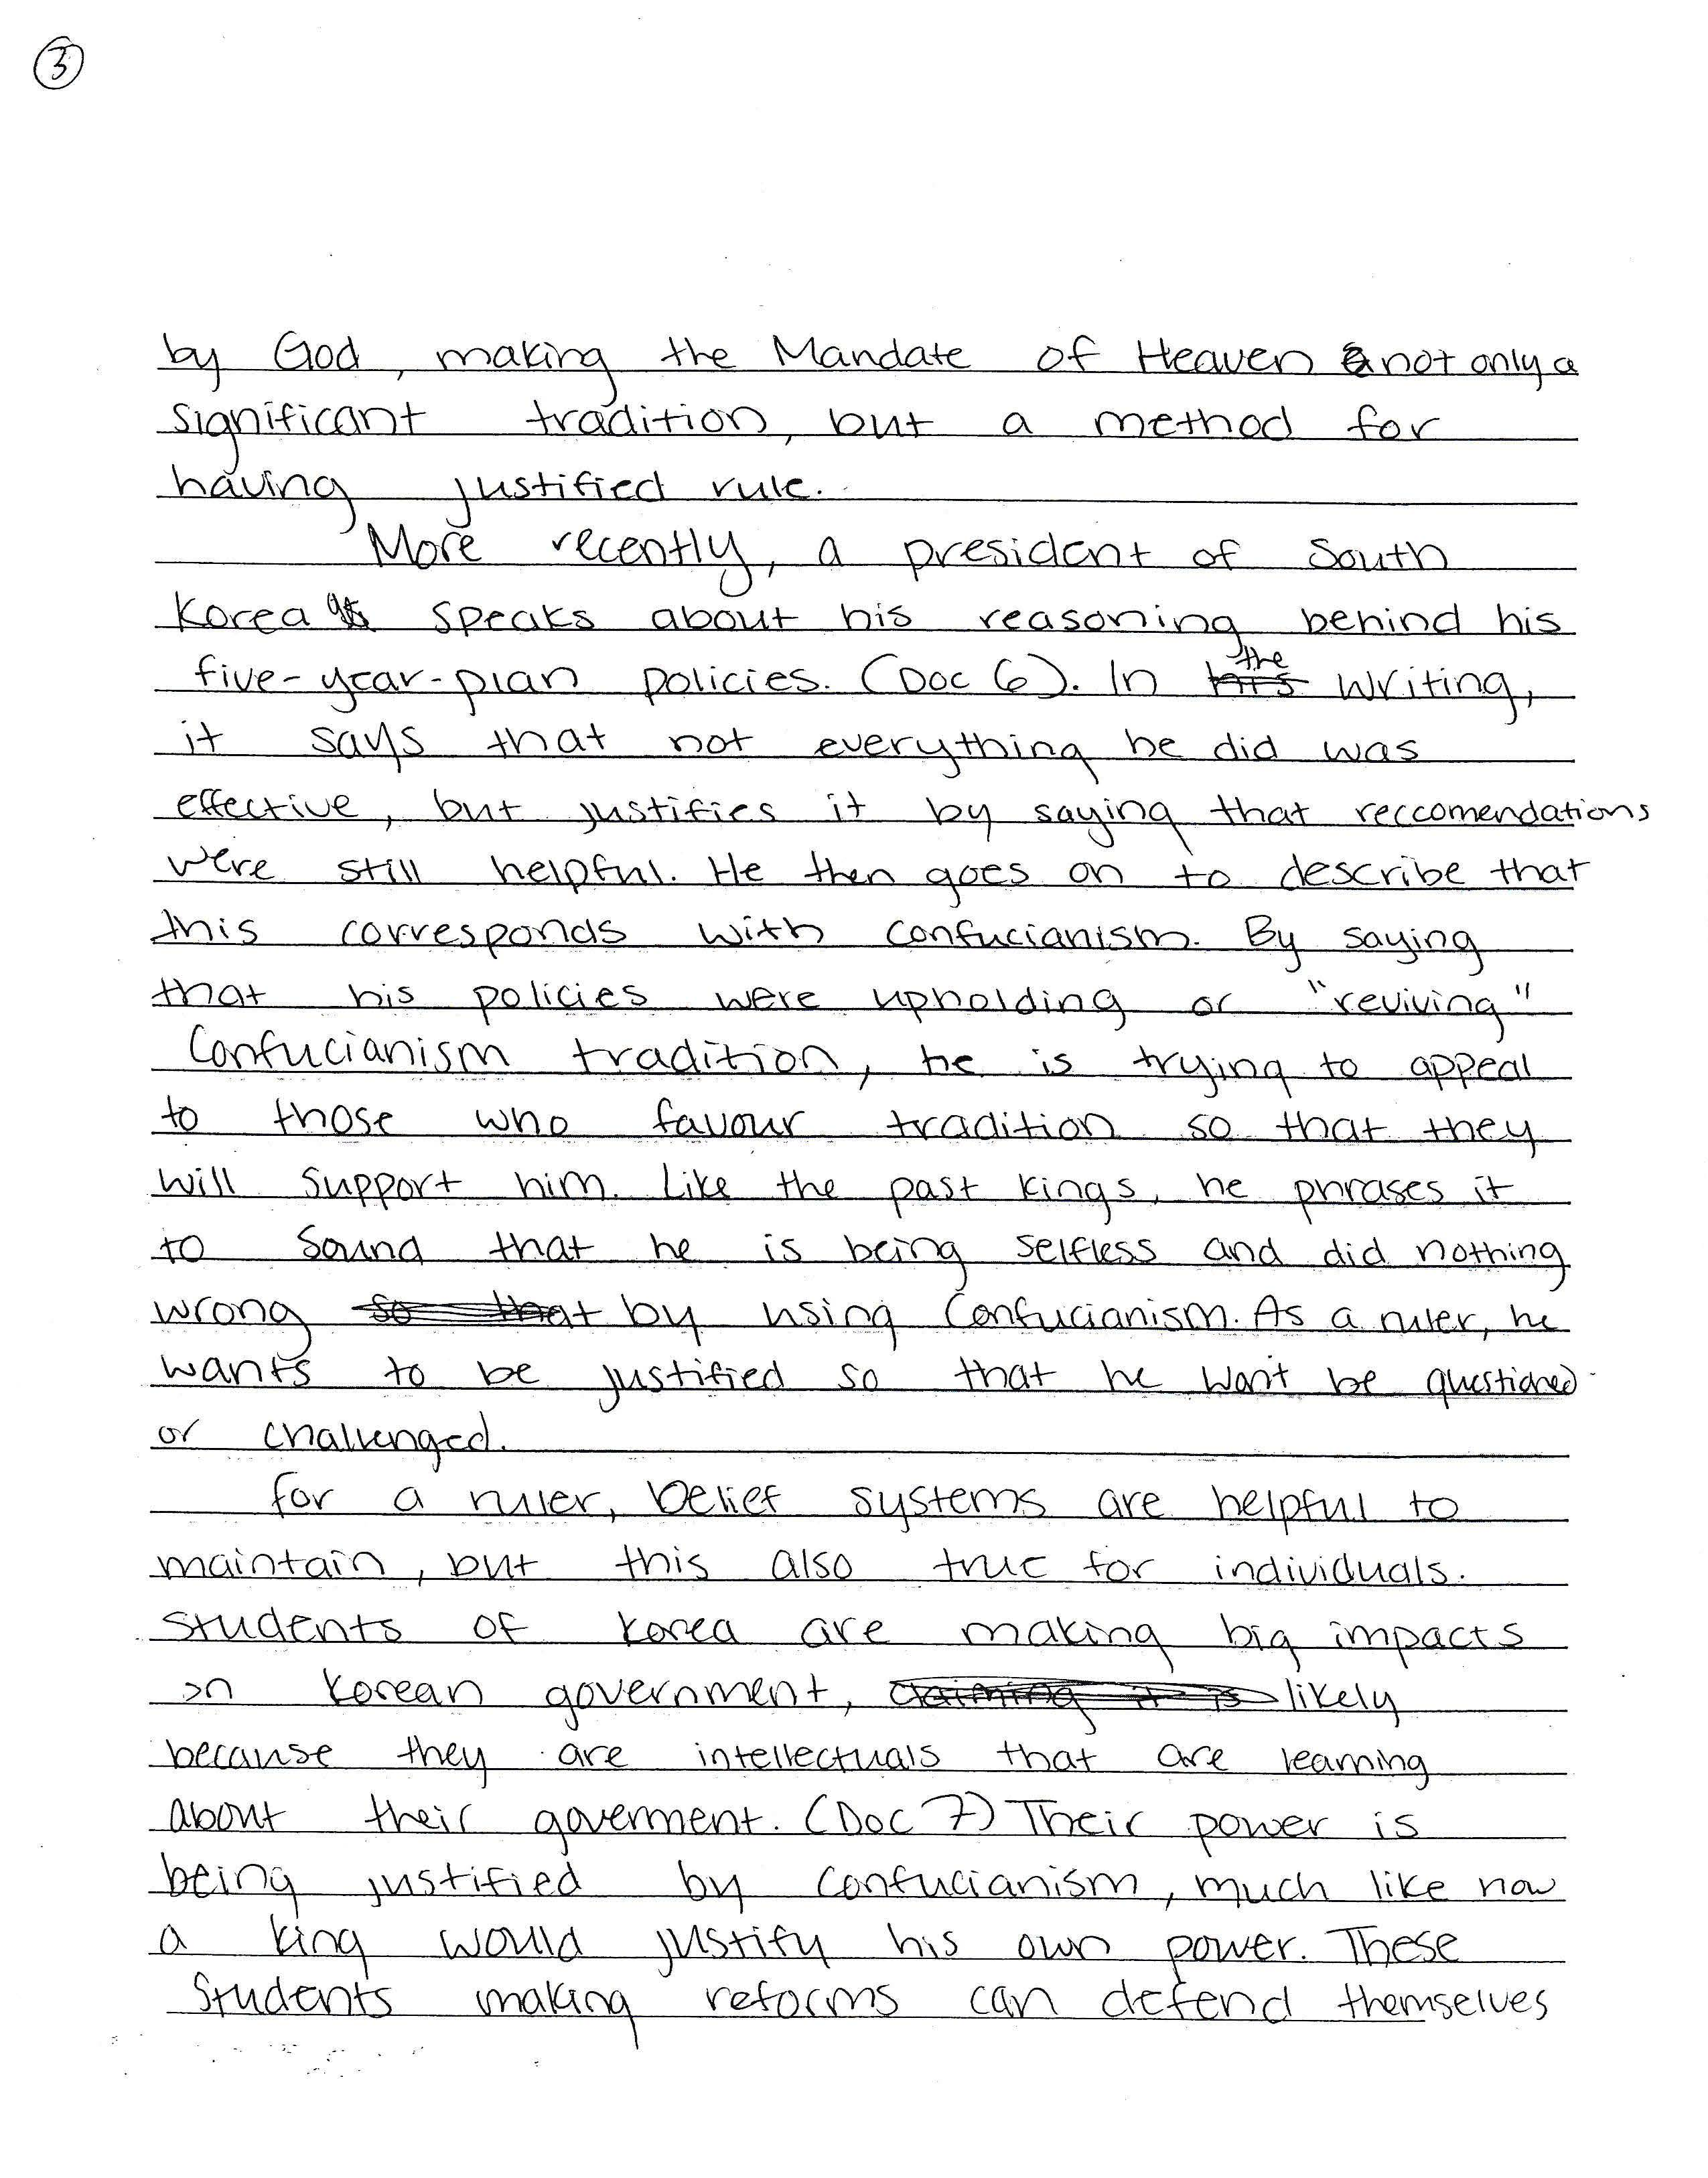 3
by God, making the Mandate of Heaven not only a
significant tradition, but a method for
having justified rule.
More recently, a president of South
Korea speaks about his reasoning behind his
five-year-plan policies. (Doc 6). In the writing,
it says that not everything he did was
effective, but justifies it by saying that reccomendations
were still helpful. He then goes on to describe that
this corresponds with Confucianism. By saying
that his policies were upholding or "reviving"
Confucianism tradition, he is trying to appeal
to those who favour tradition so that they
will support him. Like the past kings, he phrases it
to sound that he is being selfless and did nothing
wrong by using Confucianism. As a ruler, he
wants to be justified so that he won't be questioned
or challenged.
For a ruler, belief systems are helpful to
maintain, but this also true for individuals.
Students of Korea are making big impacts
on Korean government, likely
because they are intellectuals that are learning
about their goverment. (Doc 7) Their power is
being justified by Confucianism, much like how
a king would justify his own power. These
students making reforms can defend themselves